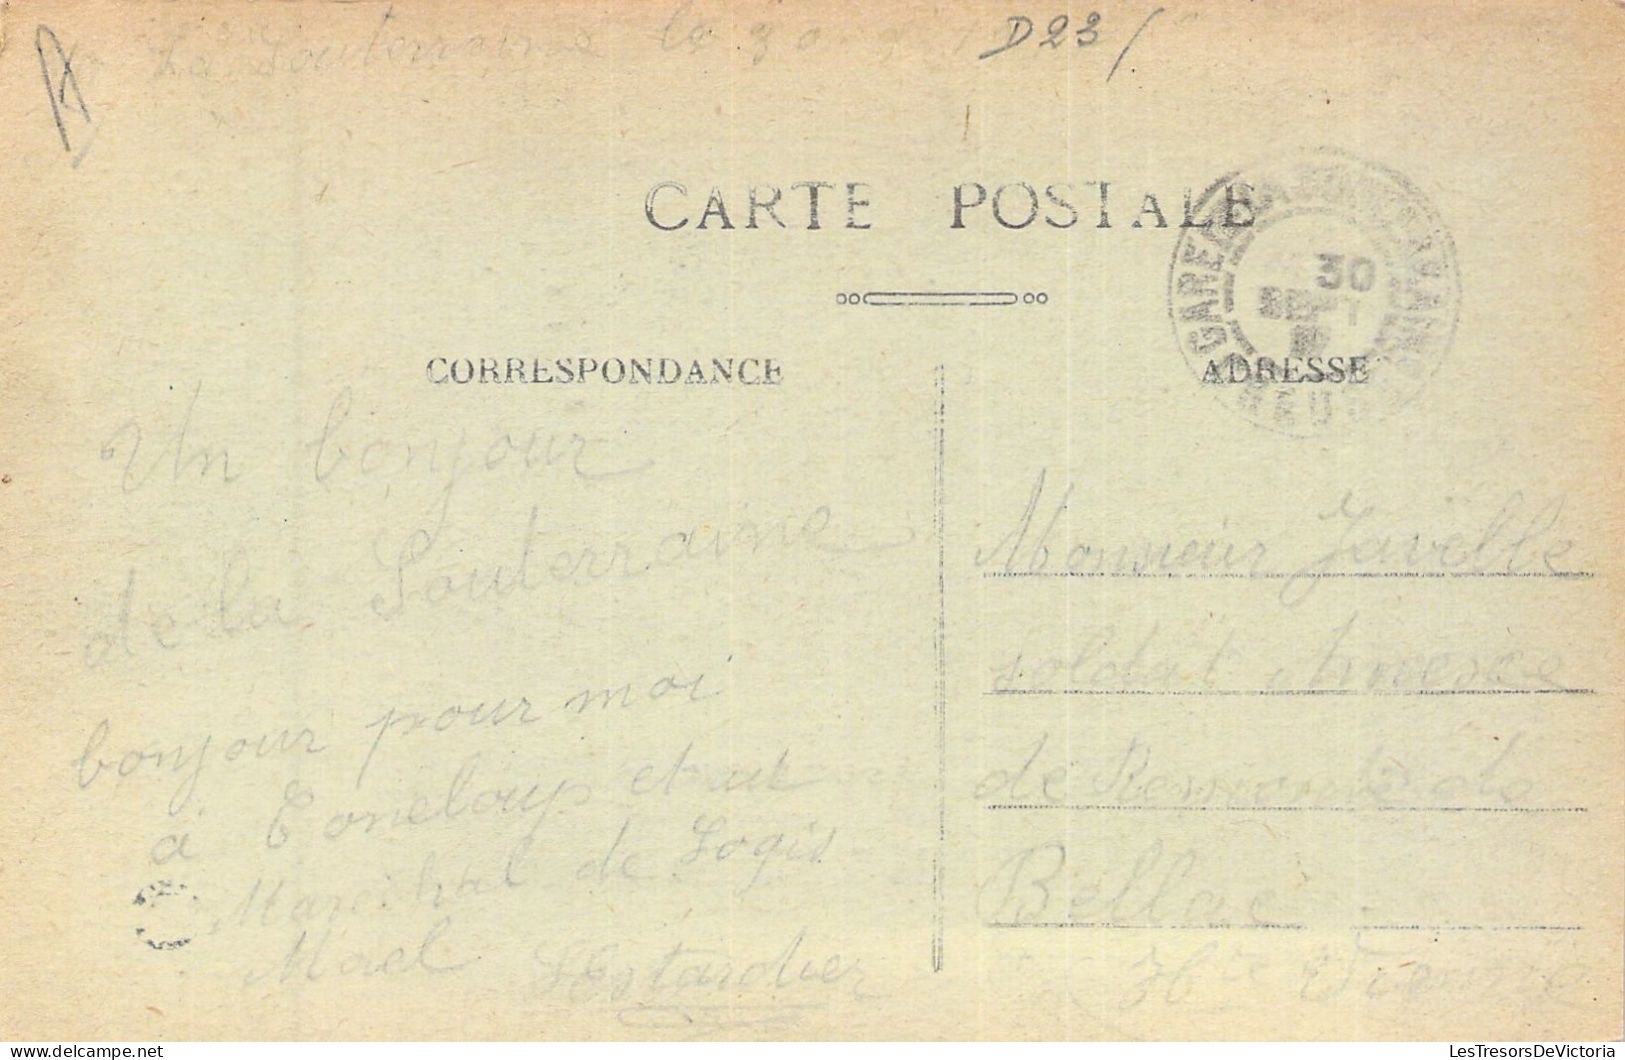 La Souterraine le 30
D23/
CARTE POSTALE
30
SEPT
CORRESPONDANCE
ADRESSE
Un bonjour
de la Souterraine
bonjour pour moi
à Toneloup et au
Marechal de Logis
Mael
Monsieur Javelle
soldat Annexe
de Remonte de
Bellac
Hte Vienne
LesTresorsDeVictoria